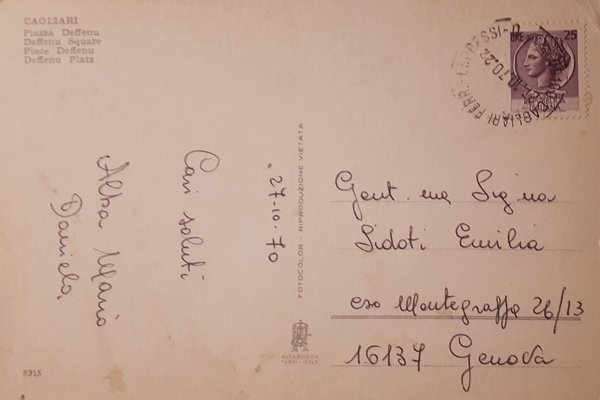 CAGLIARI
Piazza Deffenu
Deffenu Square
Place Deffenu
Deffenu Platz
25
CAGLIARI FERR.
27-10-70
Cari saluti
Alba Mario
Daniela
FOTOCOLOR - RIPRODUZIONE VIETATA
Gent.ma Sig.na
Sidoti Emilia
cso Montegrappa 26/13
16137 Genova
ALTEROCCA
TERNI-ITALY
6315